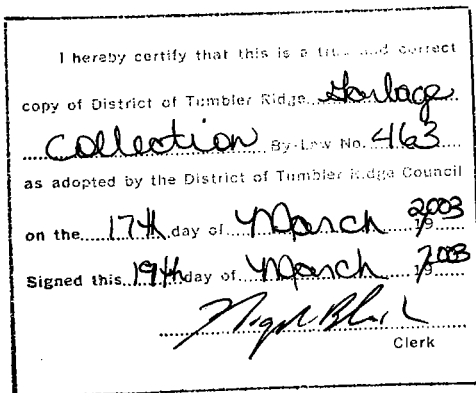 I hereby certify that this is a true and correct
copy of District of Tumbler Ridge Garbage
Collection By-Law No. 463
as adopted by the District of Tumbler Ridge Council
on the 17th day of March 2003 19
Signed this 19th day of March 2003 19
Clerk